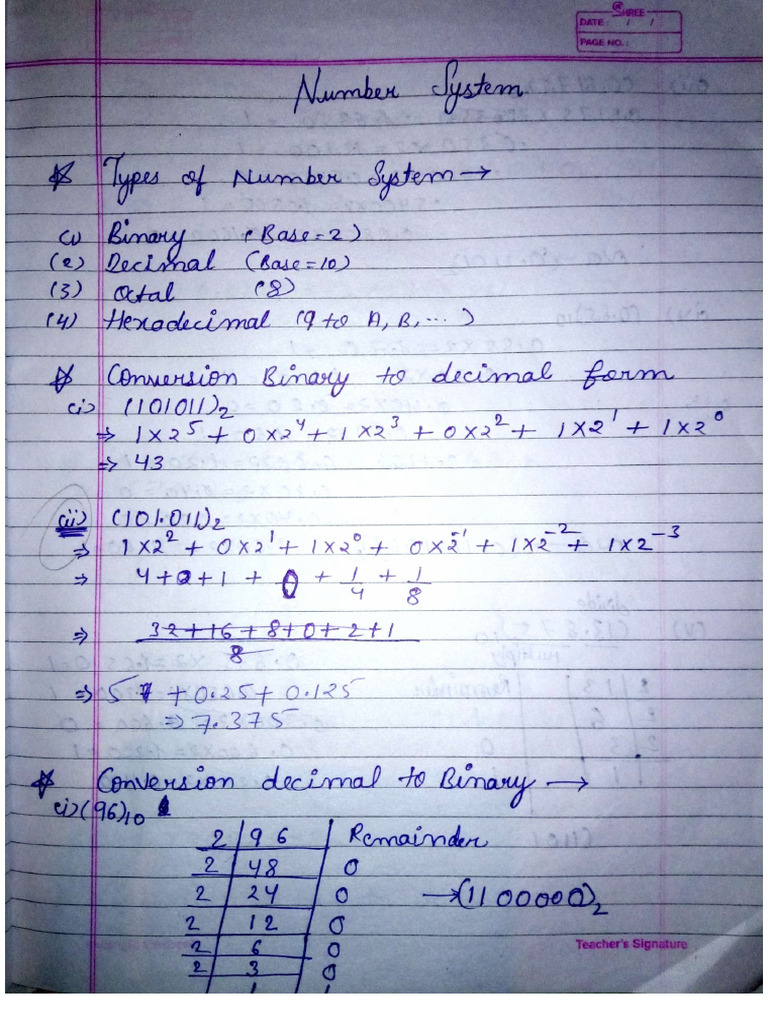 SHREE
DATE: / /
PAGE NO.:
Number System
Types of Number System →
(1) Binary (Base=2)
(2) Decimal (Base=10)
(3) Octal (8)
(4) Hexadecimal (9 to A, B, ... )
Conversion Binary to decimal form
(i) (101011)₂
⇒ 1×2⁵ + 0×2⁴ + 1×2³ + 0×2² + 1×2¹ + 1×2⁰
⇒ 43
(ii) (101.011)₂
⇒ 1×2² + 0×2¹ + 1×2⁰ + 0×2⁻¹ + 1×2⁻² + 1×2⁻³
⇒ 4+0+1 + 0 + 1/4 + 1/8
⇒ 32+16+8+0+2+1 / 8
⇒ 5 + 0.25 + 0.125
⇒ 7.375
Conversion decimal to Binary →
(i) (96)₁₀
2 | 96 | Remainder
2 | 48 | 0
2 | 24 | 0 → (1100000)₂
2 | 12 | 0
2 | 6 | 0
2 | 3 | 0
Teacher's Signature